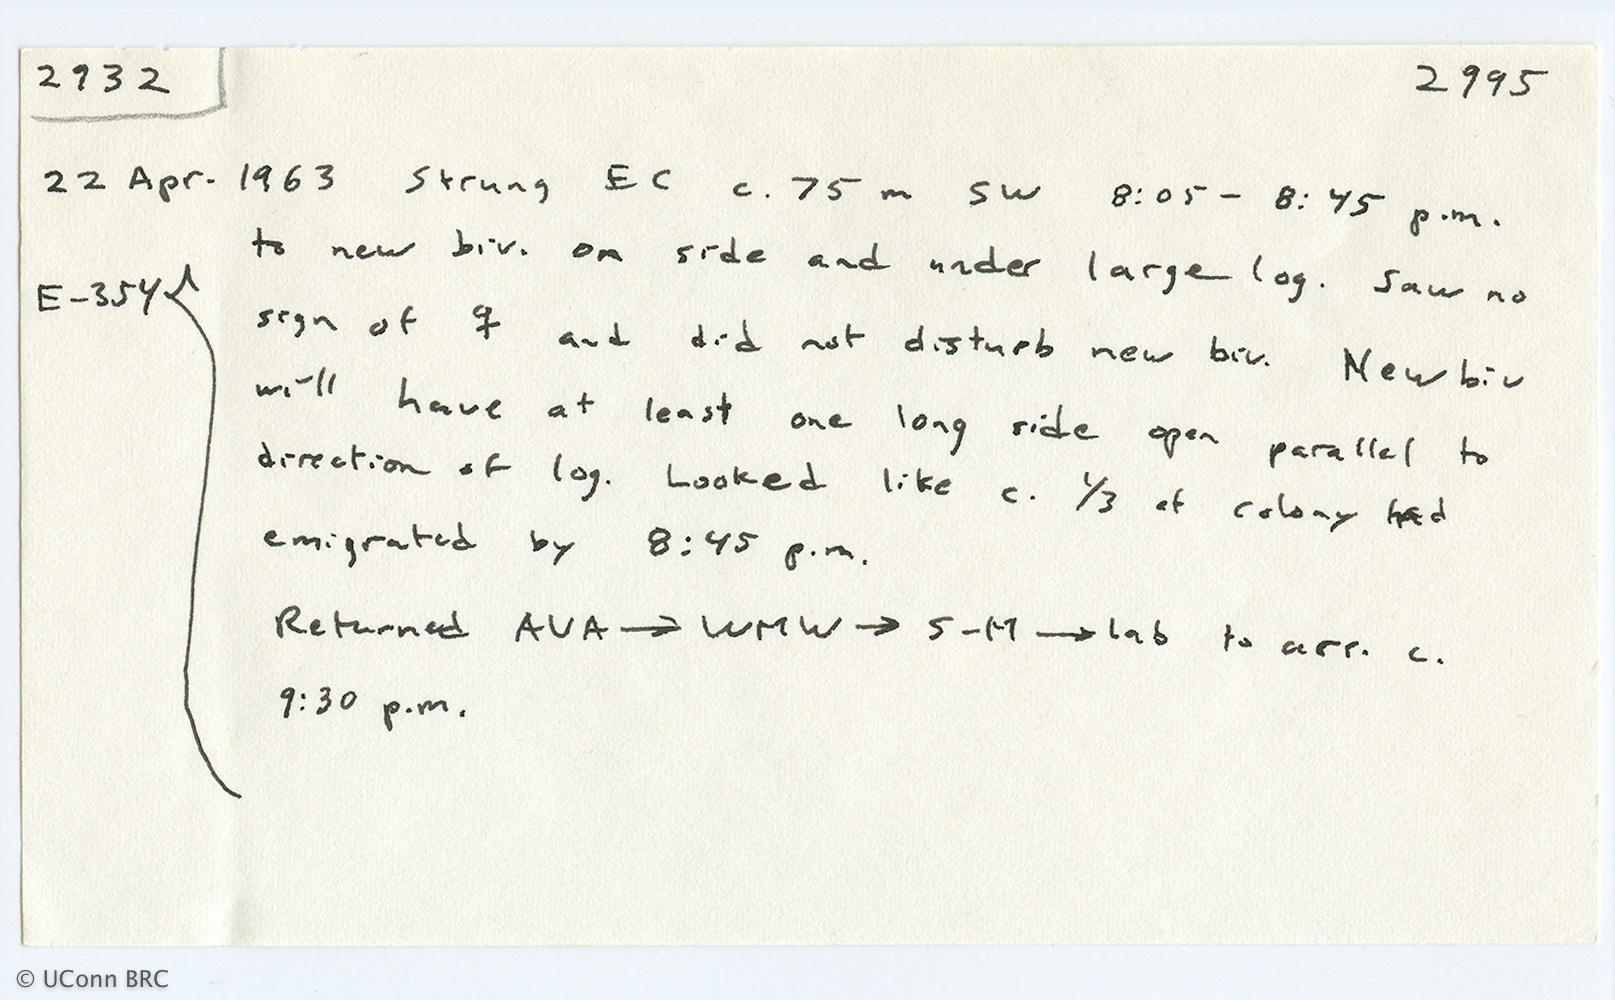 2932
2995
22 Apr. 1963 Strung EC c. 75 m SW 8:05 - 8:45 p.m.
to new biv. on side and under large log. Saw no
E-354
sign of ♀ and did not disturb new biv. New biv
will have at least one long side open parallel to
direction of log. Looked like c. 1/3 of colony had
emigrated by 8:45 p.m.
Returned AVA → WMW → S-M → lab to arr. c.
9:30 p.m.
© UConn BRC